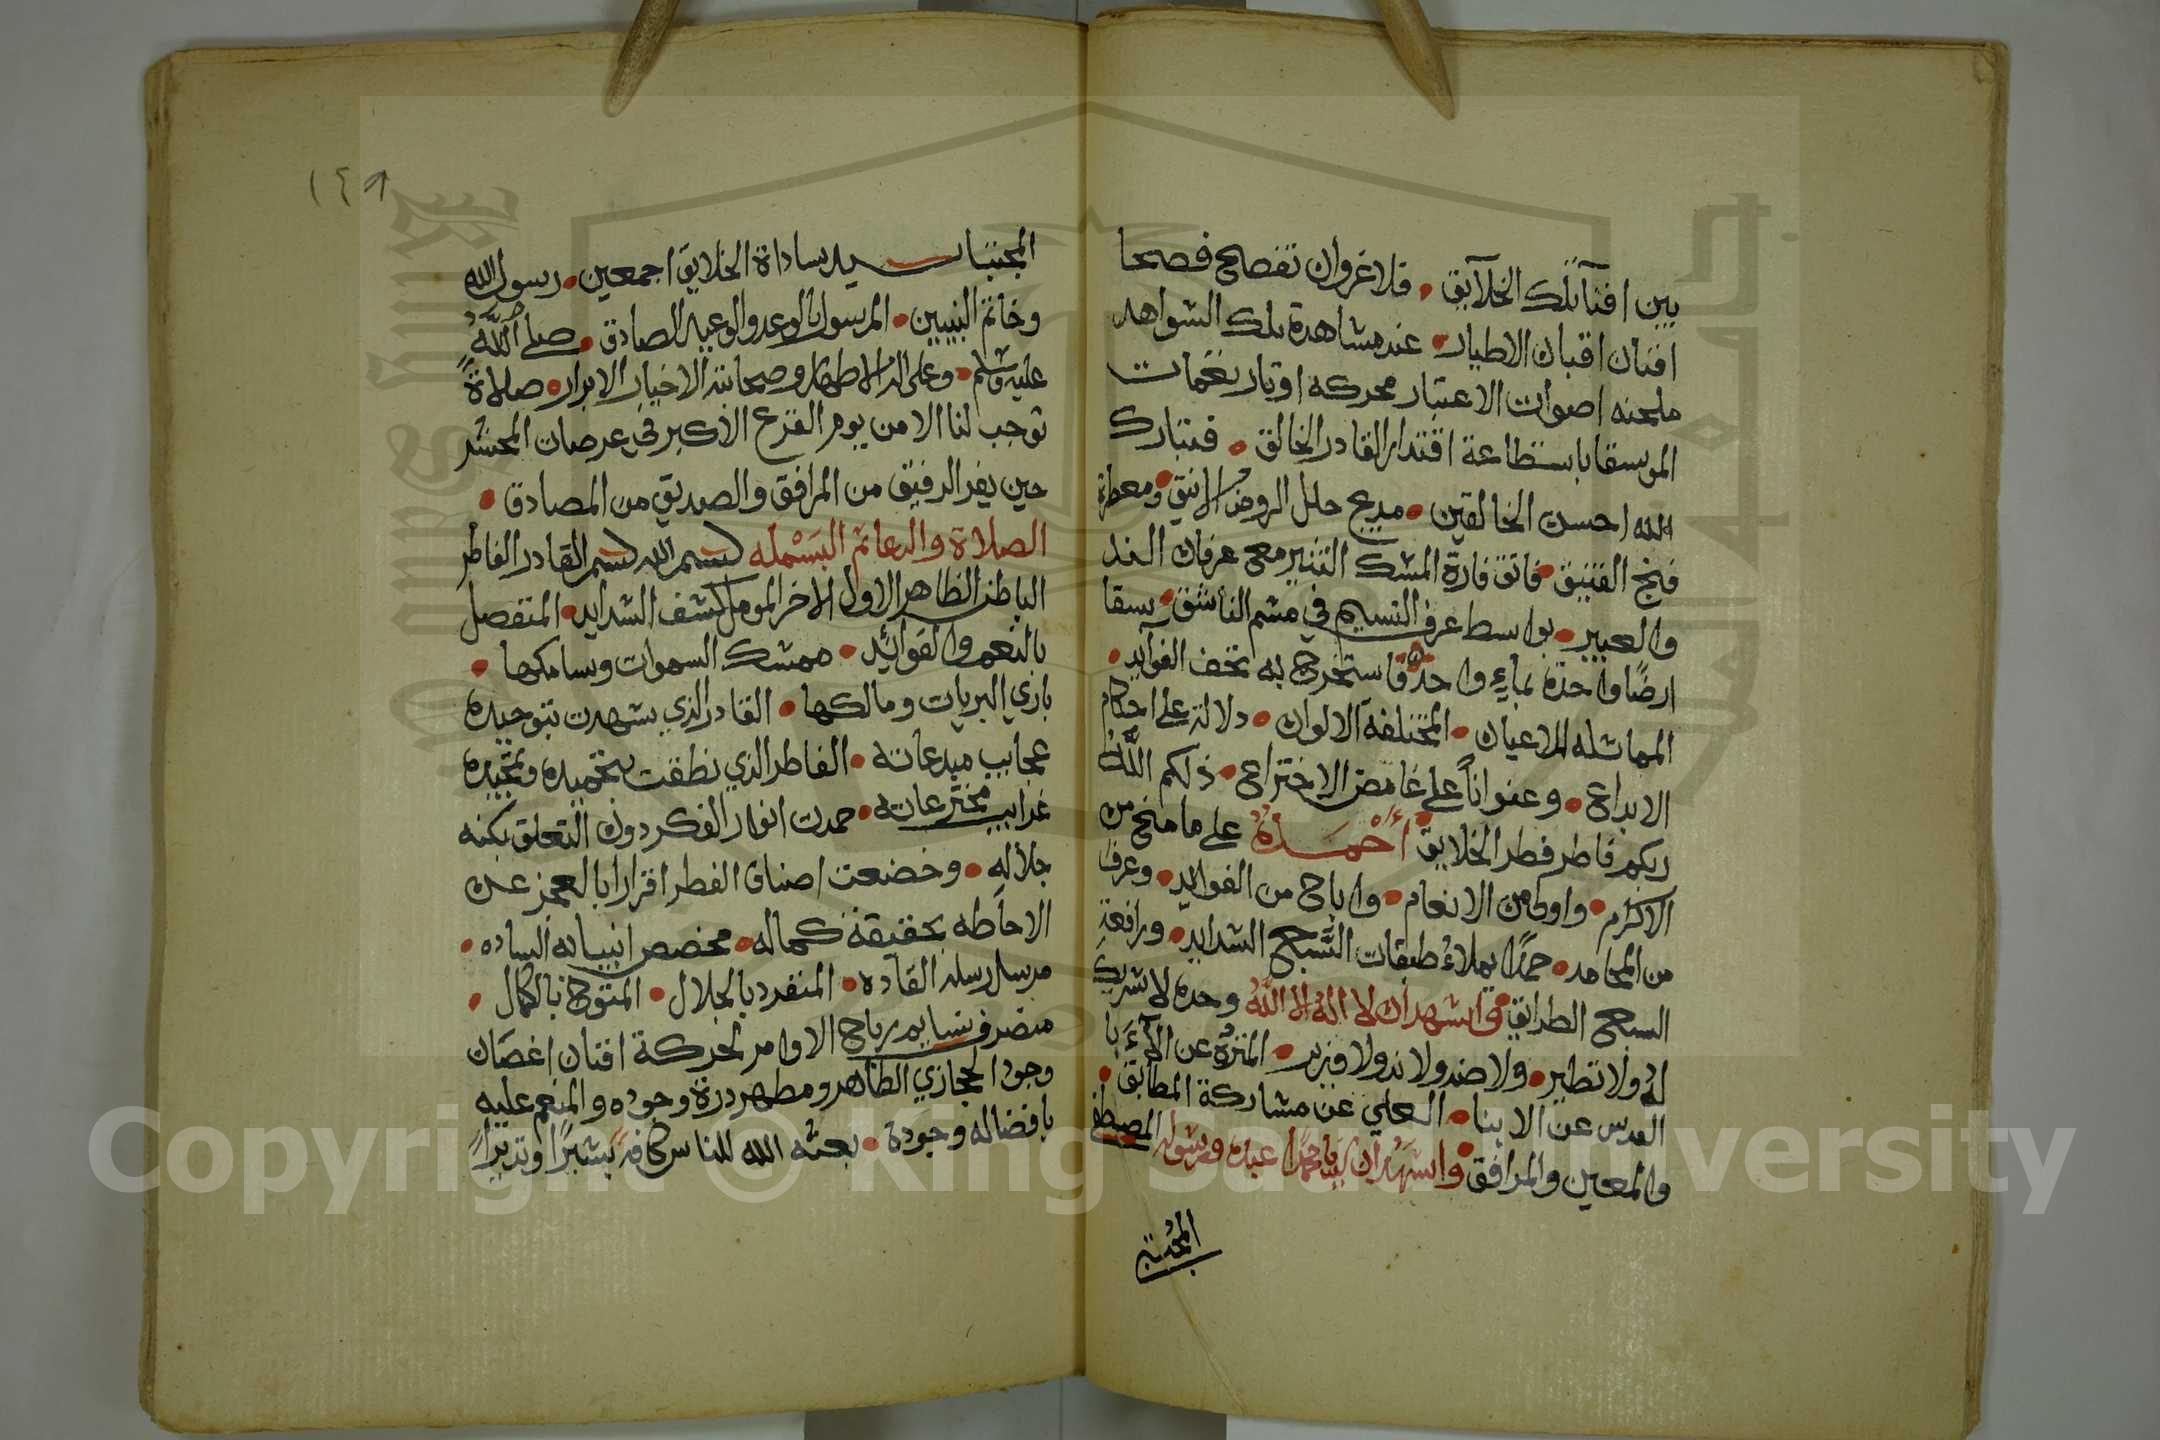 بين افنآ تلك الخلآيق • فلا غروان تفصح فصحا
افنان اقبان الاطيار • عند مشاهدة تلك الشواهد
ملحنه اصوات الاعتبار محركه اوتار نغمات
الموسقا باستطاعة اقتدار القادر الخالق • فتبارك
الله احسن الخالقين • مدبج حلل الروض الانيق • ومعطرة
فنج الفتيق • فاتق فارة المشك التنير مع عرفان الند
والعبير • بواسط عرف النسيم في مشم الناشق • يسقا
ارضًا واحدة بماءٍ واحدٍ فاستخرج به تحف الفوآيد •
المماثله الاعيان • المختلفة الالوان • دلالة على احكام
الابداع • وعنوانًا على غامض الاختراع • ذلكم اللَّهُ
ربكم فاطر فطر الخلايق • أَحْمَدُهُ على ما منح من
الاكرام • واولى من الانعام • واباح من الفوايد • وعرف
من المحامد • حمدًا يملاءُ طبقات السَّبع الشدايد • ورافعة
السبع الطرايق • واشهد ان لا اله الا اللَّهُ وحده لا شريك
لهُ ولا نظير • ولا ضد ولا ند ولا وزير • المنزه عن الآءَبا
القدس عن الابنا • العلي عن مشاركة المطابق •
والمعين والمرافق • واشهد ان نبينا محمدًا عبده ورسوله المصطفى
المجتبا
١٤٨
المجتبا سيد ساداة الخلايق اجمعين • رسول الله
وخاتم النبيين • المرسول بالوعد والوعيد الصادق • صلى اللَّهُ
عليه وسلم • وعلى اله الاطهار وصحابته الاخيار الابرار • صلاةً
توجب لنا الامن يوم الفزع الاكبر في عرصات المحشر
حين يفر الرفيق من المرافق والصديق من المصادق •
الصلاة والدعا تم البَسْمله بسم الله بسم القادر الفاطر
الباطن الظاهر الاول الاخر المومل لكشف الشدايد • المتفصل
بالنعم والفوائد • ممسك السموات وسامكها •
باري البريات ومالكها • القادر الذي شهدت بتوحيده
عجايب مبدعاته • الفاطر الذي نطقت بتحميده وتمجيده
غرايب مخترعاته • حمدت انوار الفكر دون التعلق بكنه
جلاله • وخضعت اصناف الفطر اقرارا بالعجز عن
الاحاطه بحقيقة كماله • مخصص انبيائه الساده •
مرسل رسله القاده • المنفرد بالجلال • المتوج بالكمال •
مصرف نسايم رياح الاوامر لحركة افنان اغصان
وجود الحجازي الطاهر ومطهر درة وجوده والمنعم عليه
بافضاله وجودة • بعثه الله للناس كافة بشيرًا ونذيرًا
Copyright © King Saud University